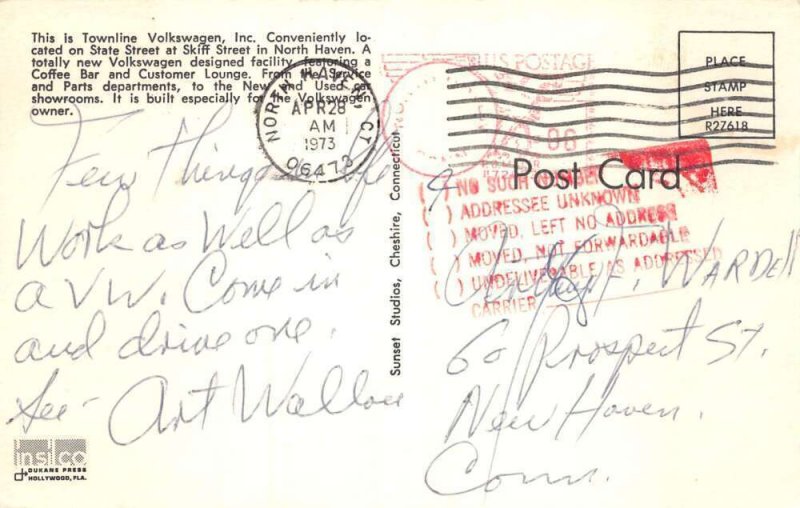 This is Townline Volkswagen, Inc. Conveniently lo-
cated on State Street at Skiff Street in North Haven. A
totally new Volkswagen designed facility, featuring a
Coffee Bar and Customer Lounge. From the Service
and Parts departments, to the New and Used car
showrooms. It is built especially for the Volkswagen
owner.
NORTH HAVEN CT
APR 28
AM
1973
06473
U.S. POSTAGE
PLACE
STAMP
HERE
R27618
Post Card
( ) NO SUCH NUMBER
( ) ADDRESSEE UNKNOWN
( ) MOVED, LEFT NO ADDRESS
( ) MOVED, NOT FORWARDABLE
( ) UNDELIVERABLE AS ADDRESSED
CARRIER
Few things in life
Work as Well as
a VW. Come in
and drive one.
See - Art Wallace
F. WARDELL
60 Prospect St.
New Haven.
Conn.
Sunset Studios, Cheshire, Connecticut
insilco
DUKANE PRESS
HOLLYWOOD, FLA.